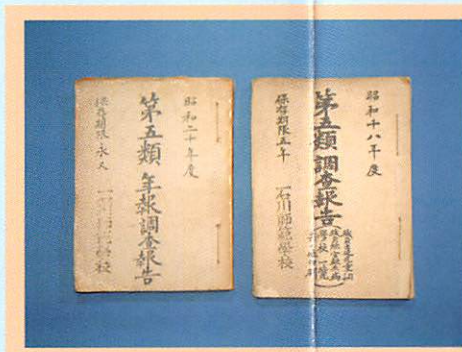 昭和十八年度
第五類 調査報告
保存期限五年
石川師範學校
昭和二十年度
第五類 年報調査報告
保存期限 永久